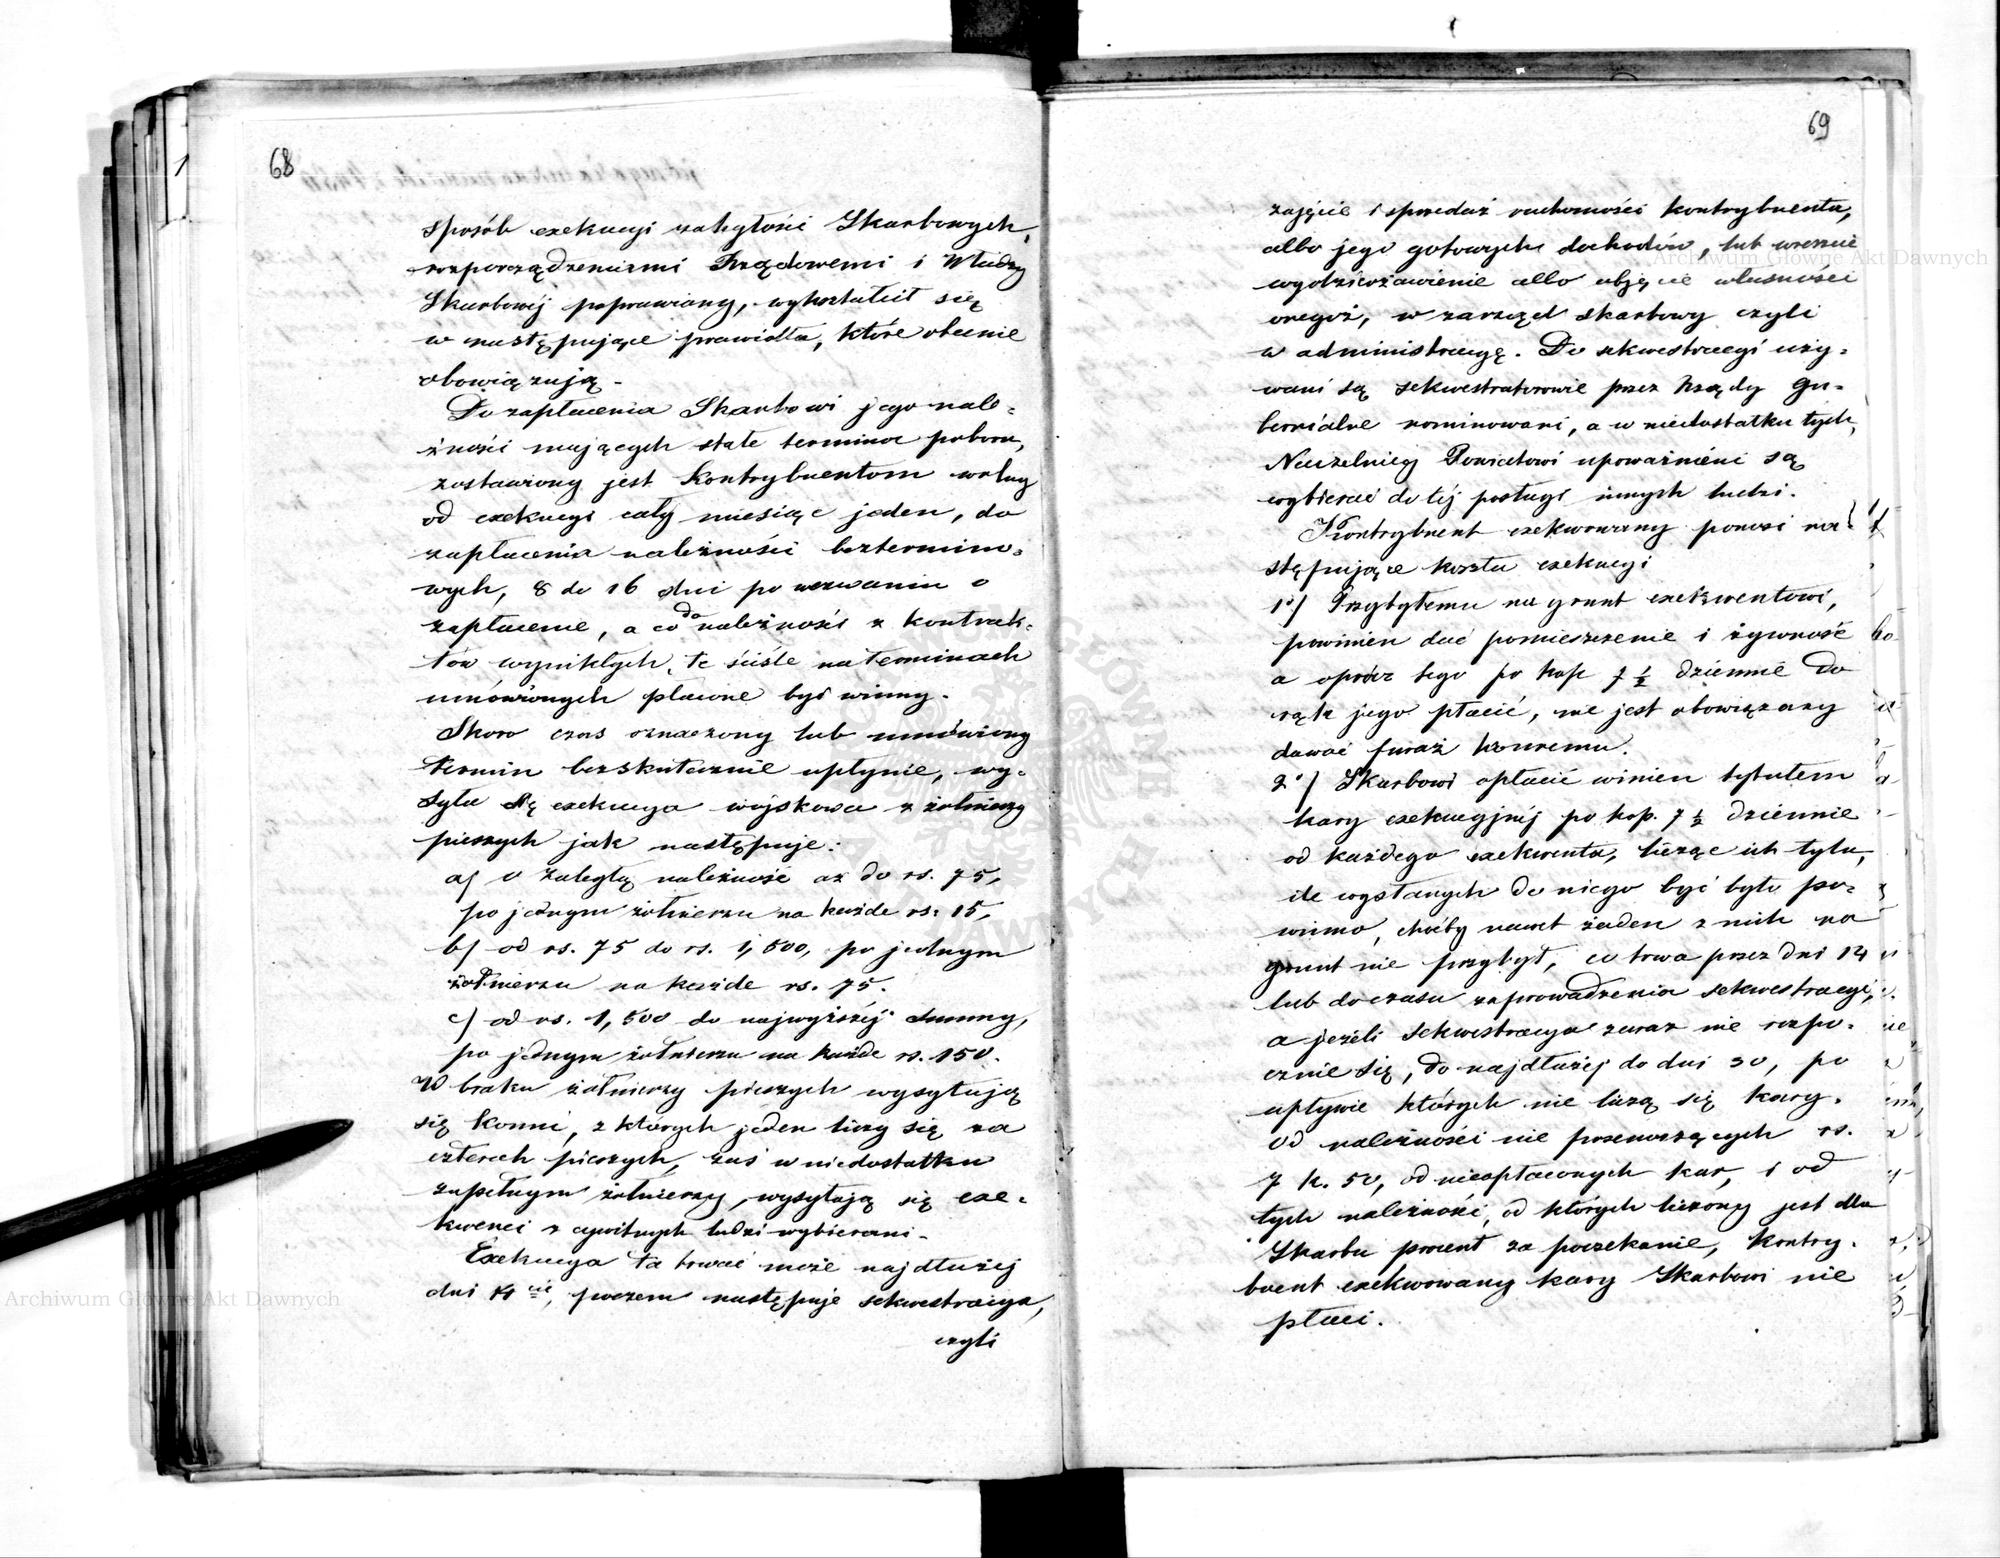 68
sposób exekucyi zaległości Skarbowych,
rozporządzeniami Rządowemi i Władzy
Skarbowéj poprawiany, wykształcił się
w następujące prawidła, które obecnie
obowiązują.
Do zapłacenia Skarbowi jego nale-
żności mających stałe termina poboru,
zostawiony jest Kontrybuentom wolny
od exekucyi cały miesiąc jeden, do
zapłacenia należności beztermino-
wych, 8 do 16 dni po wezwaniu o
zapłacenie, a co do należności z kontrak-
tów wynikłych, te ściśle na terminach
umówionych płacone być winny.
Skoro czas oznaczony lub umówiony
termin bezskutecznie upłynie, wy-
syła się exekucya wojskowa z żołnierzy
pieszych jak następuje:
a/ o zaległą należność aż do rs. 75,
po jednym żołnierzu na każde rs. 15,
b/ od rs. 75 do rs. 1,500, po jednym
żołnierzu na każde rs. 75.
c/ od rs. 1,500 do najwyższéj summy,
po jednym żołnierzu na każde rs. 150.
W braku żołnierzy pieszych wysyłują
się konni, z których jeden liczy się za
czterech pieszych, zaś w niedostatku
zupełnym żołnierzy, wysyłają się exe-
kwenci z cywilnych ludzi wybierani.
Exekucya ta trwać może najdłużej
dni 14cie, poczem następuje sekwestracya,
czyli
69
zajęcie i sprzedaż ruchomości kontrybuenta,
albo jego gotowych dochodów, lub wreszcie
wydzierżawienie albo objęcie własności
onegoż, w zarząd skarbowy czyli
w administracyę. Do sekwestracyi uży-
wani są sekwestratorowie przez Rządy Gu-
bernialne nominowani, a w niedostatku tych,
Naczelnicy Powiatowi upoważnieni są
wybierać do téj posługi innych ludzi.
Kontrybuent exekwowany ponosi na-
stępujące koszta exekucyi
1°/ Przybyłemu na grunt exekwentowi,
powinien dać pomieszczenie i żywność
a oprócz tego po kop 7 ½ dziennie do
rąk jego płacić, nie jest obowiązany
dawać furaż konnemu.
2°/ Skarbowi opłacić winien tytułem
kary exekucyjnéj po kop. 7 ½ dziennie
od każdego exekwenta, licząc ich tylu,
ile wysłanych do niego być było po-
winno, choćby nawet żaden z nich na
grunt nie przybył, co trwa przez dni 14
lub do czasu zaprowadzenia sekwestracyi,
a jeżeli sekwestracya zaraz nie rozpo-
cznie się, do najdłużéj do dni 30, po
upływie których nie liczą się kary.
Od należności nie przenoszących rs.
7 k. 50, od nieopłaconych kar, i od
tych należności, od których liczony jest dla
Skarbu procent za poczekanie, kontry-
buent exekwowany kary Skarbowi nie
płaci.
Archiwum Główne Akt Dawnych
Archiwum Główne Akt Dawnych